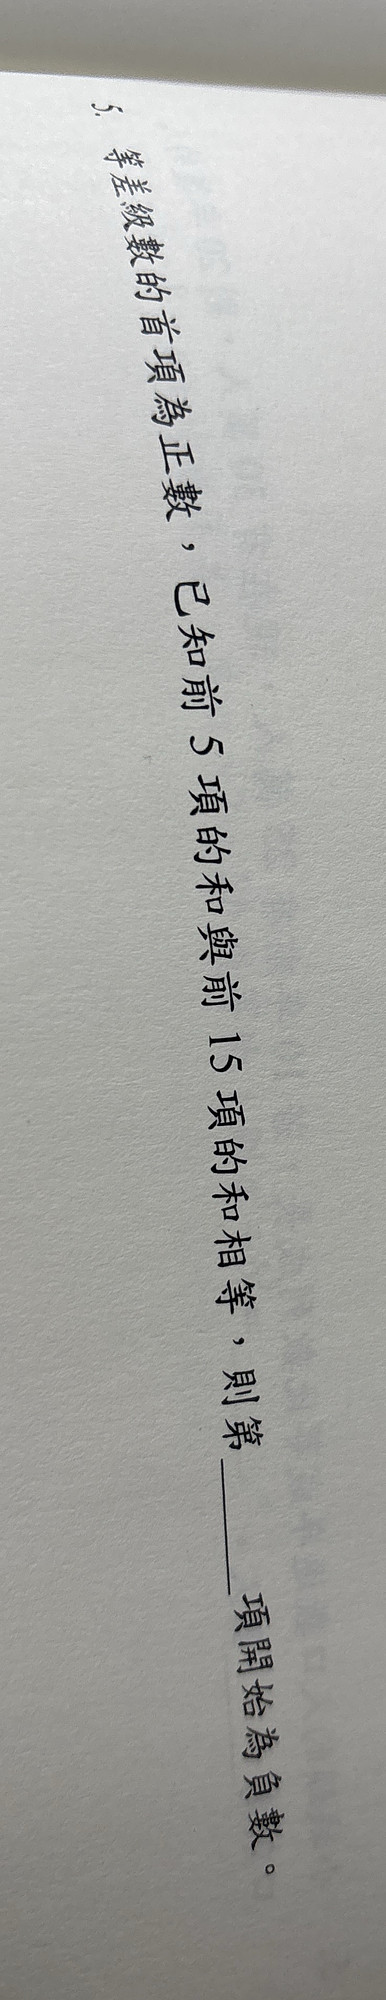 5. 等差級數的首項為正數，已知前 5 項的和與前 15 項的和相等，則第______項開始為負數。